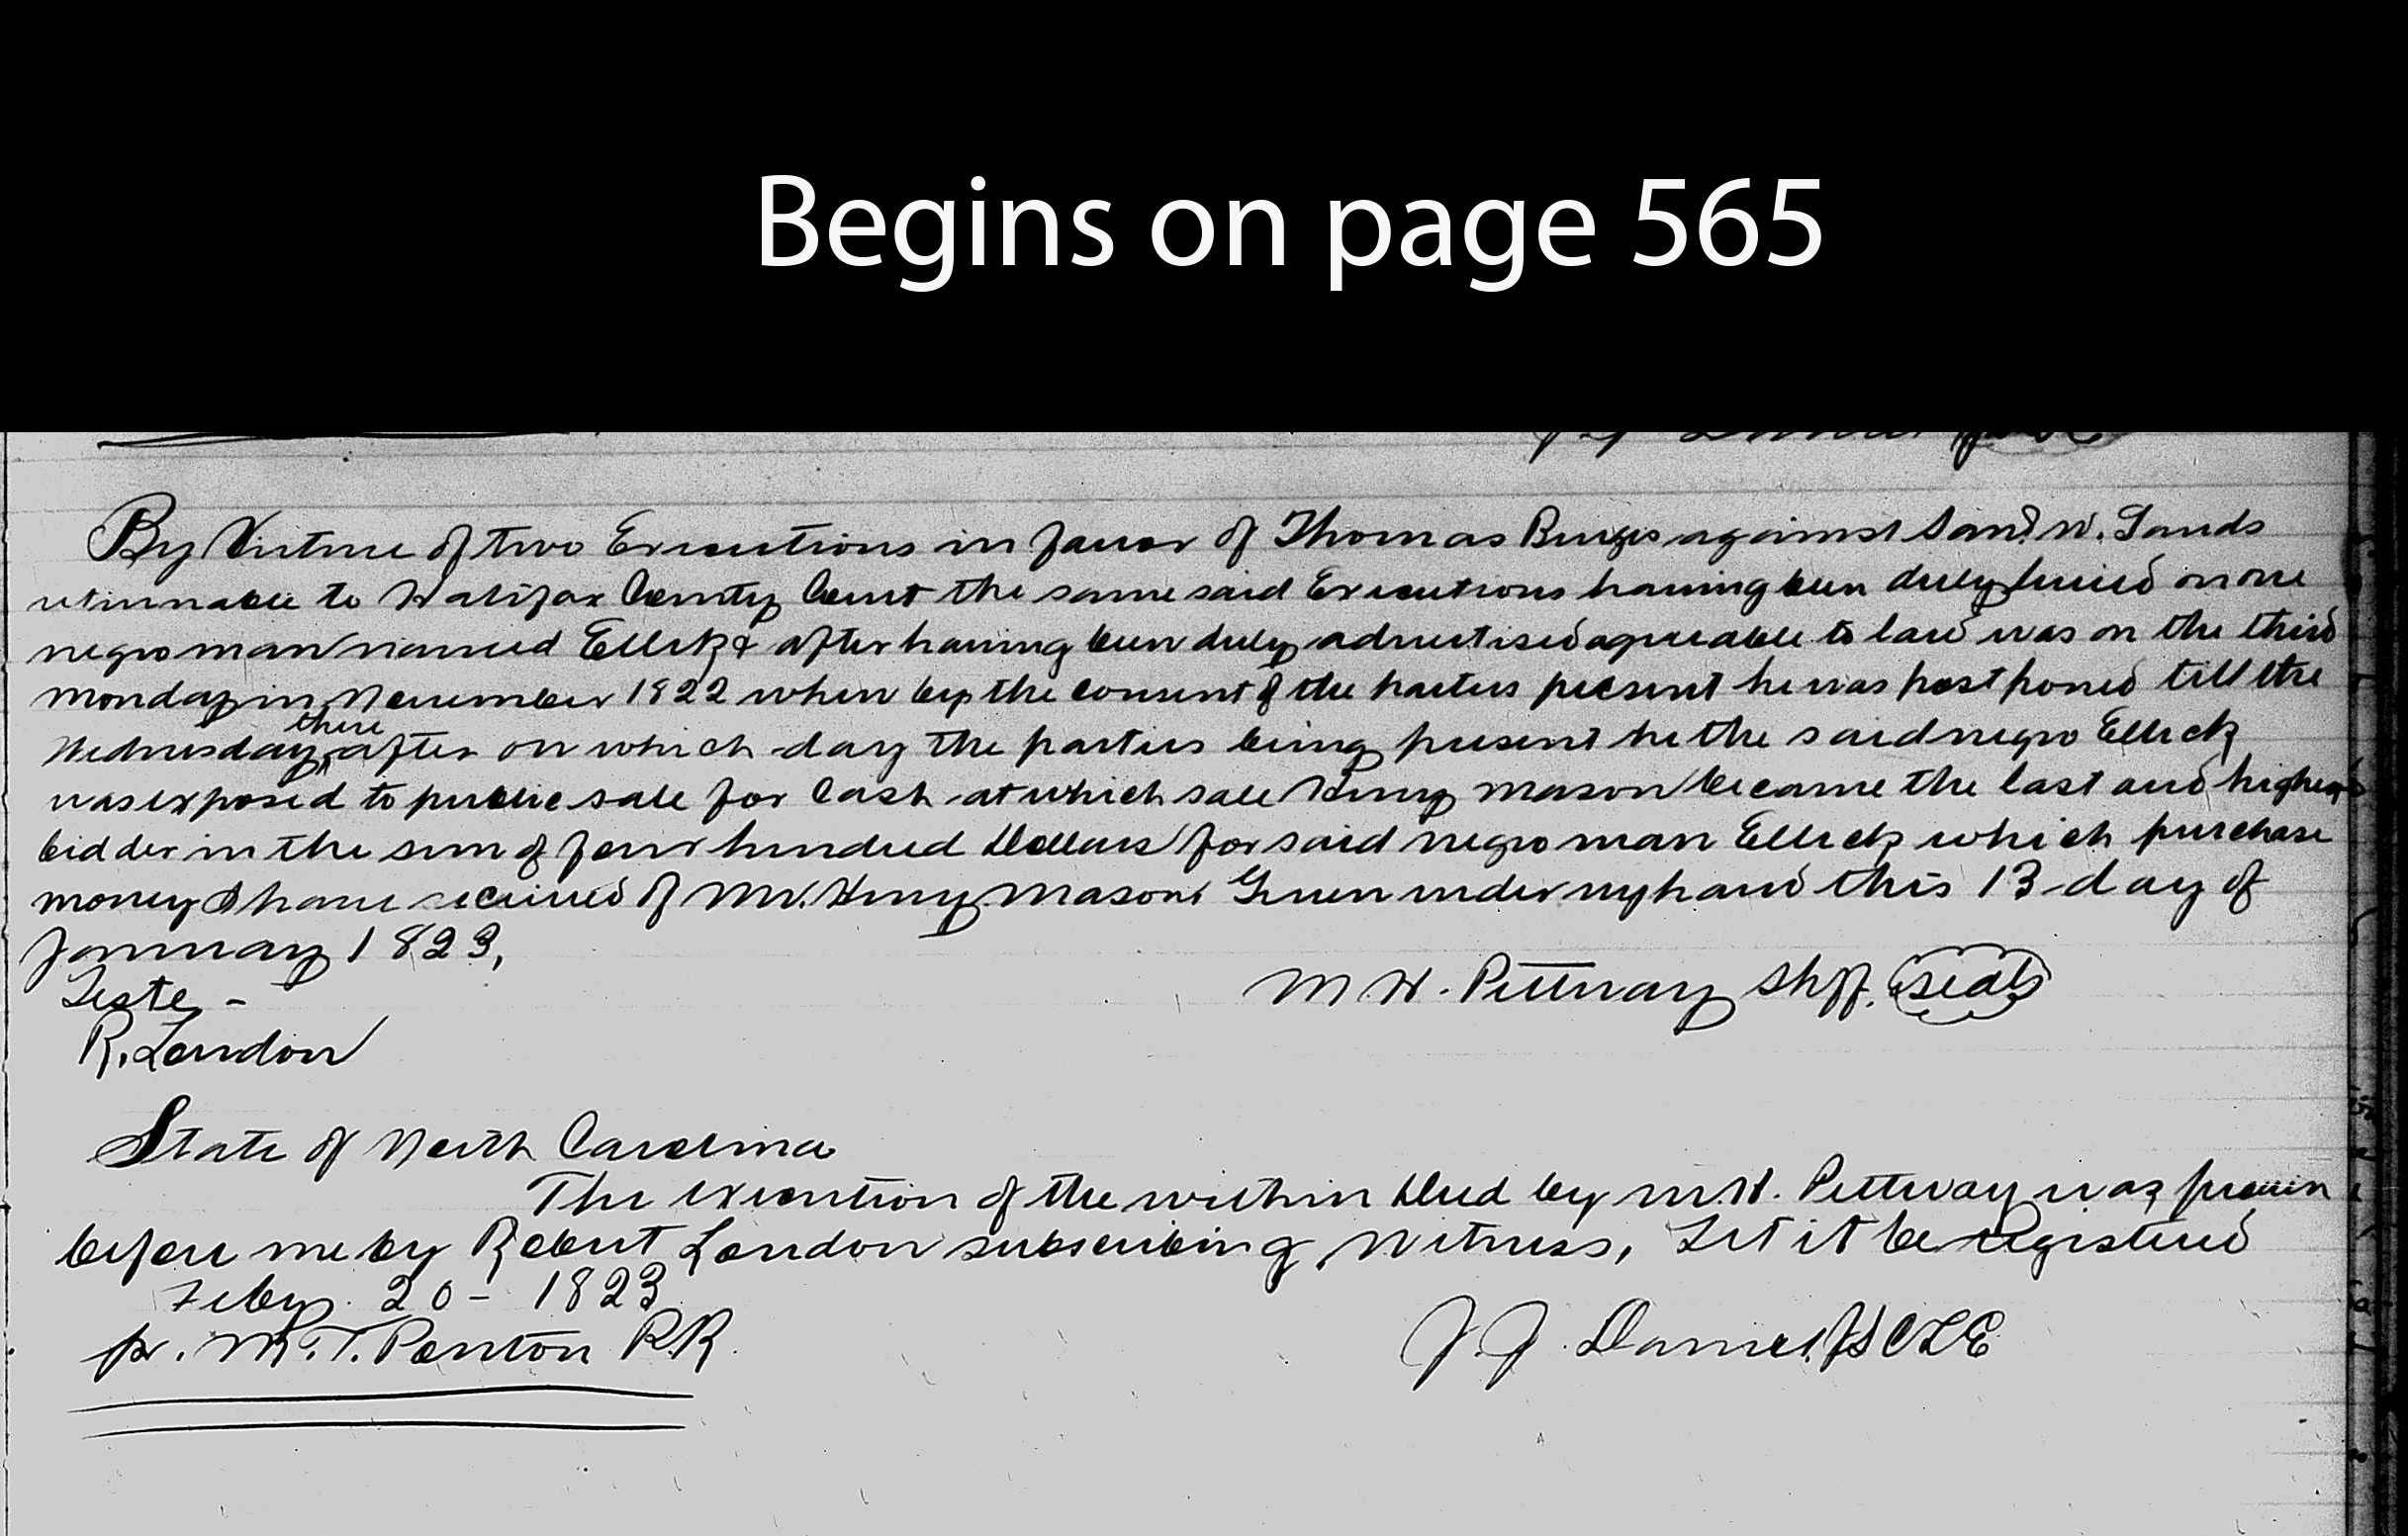 Begins on page 565
By Virtue of two Executions in favor of Thomas Burges against Saml. W. Sands
returnable to Halifax County Court the same said Executions having been duly levied on one
negro man named Ellick & after having been duly advertised agreeable to law was on the third
Monday in November 1822 when by the consent of the parties present he was postponed till the
Wednesday there after on which day the parties being present he the said negro Ellick
was exposed to public sale for Cash at which sale Henry Mason became the last and highest
bidder in the sum of four hundred Dollars for said negro man Ellick which purchase
money I have received of Mr. Henry Mason Given under my hand this 13 day of
January 1823,
Teste -
R. London
M. H. Pittway Shff. Seal
State of North Carolina
The execution of the within Deed by M. H. Pittway was proven
before me by Robert London subscribing Witness, Let it be registered
Feby. 20 - 1823
pr. M. T. Ponton P.R.
J. J. Daniel JSCLE